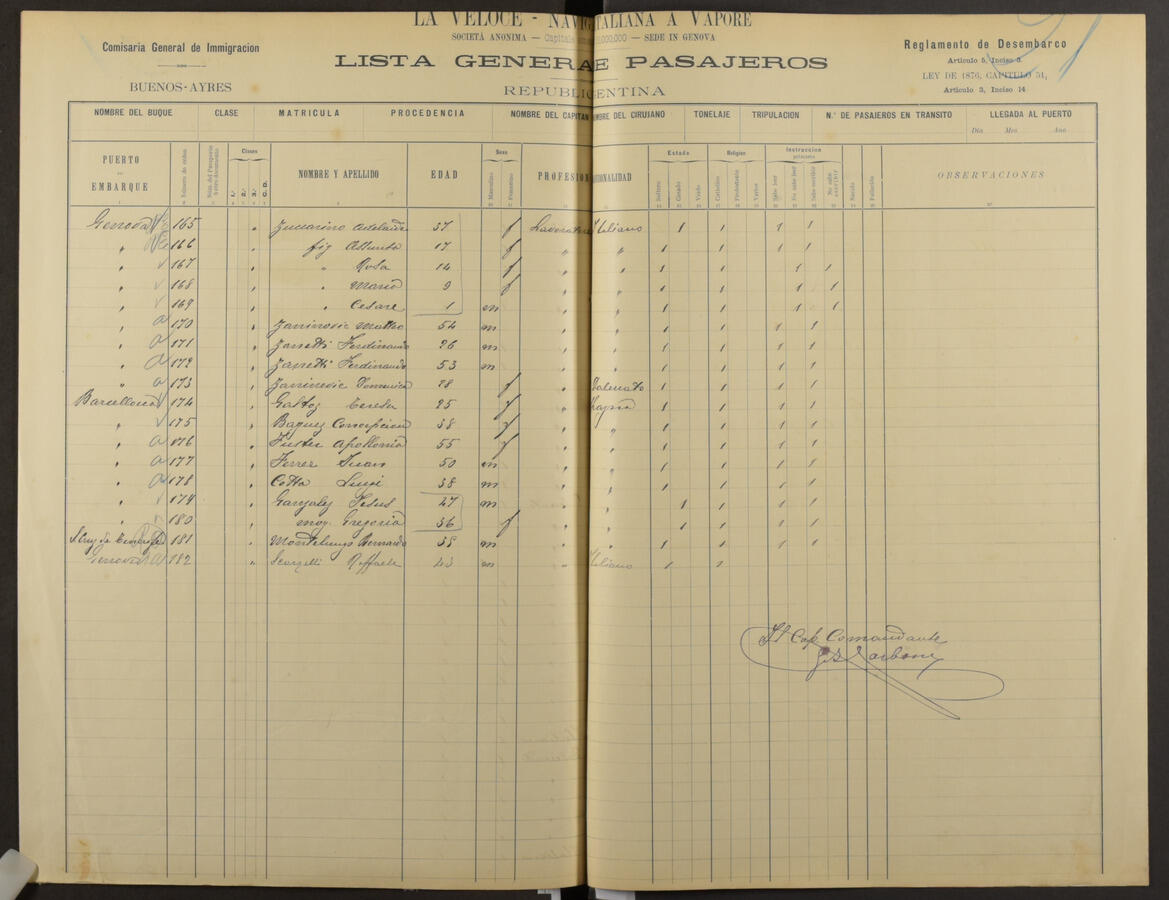 LA VELOCE - NAVIG ITALIANA A VAPORE
SOCIETÀ ANONIMA — Capitale 000.000 — SEDE IN GENOVA
Comisaria General de Immigracion
BUENOS-AYRES
LISTA GENERA E PASAJEROS
REPUBLIC ENTINA
Reglamento de Desembarco
Articulo 5, Inciso 3
LEY DE 1876, CAPITULO 31,
Articulo 3, Inciso 14
NOMBRE DEL BUQUE CLASE MATRICULA PROCEDENCIA NOMBRE DEL CAPITAN MBRE DEL CIRUJANO TONELAJE TRIPULACION N.° DE PASAJEROS EN TRANSITO LLEGADA AL PUERTO
Dia Mes Ano
PUERTO EMBARQUE Número de orden Clases 1.ª 2.ª 3.ª C. D. NOMBRE Y APELLIDO EDAD Sexo Masculino Femenino PROFESION CIONALIDAD Estado Soltero Casado Viudo Religion Catolico Protestante Varios Instruccion Sabe leer No sabe leer Sabe escribir No sabe escribir Nacido Fallecido OBSERVACIONES
Genova 165 " Zuccarino Adelaide 37 f Lavoratore Italiano 1 1 1 1
" 166 " fig Assunta 17 f " " 1 1 1 1
" 167 " " Rosa 14 f " " 1 1 1 1
" 168 " " Maria 9 f " " 1 1 1 1
" 169 " " Cesare 1 m " " 1 1 1 1
" a 170 " Zaninovic Matteo 54 m " " 1 1 1 1
" a 171 " Zanetti Ferdinando 26 m " " 1 1 1 1
" a 172 " Zanetti Ferdinando 53 m " " 1 1 1 1
" a 173 " Zaninovic Domenica 28 f " 1 1 1 1
Barcellona 174 " Teresa 25 f " 1 1 1 1
" 175 " Concepcion 38 f " " 1 1 1 1
" a 176 " Fuster Apollonia 55 f " " 1 1 1 1
" a 177 " Ferrer Juan 50 m " " 1 1 1 1
" a 178 " Cotta Luigi 38 m " " 1 1 1 1
" 179 " Gonzalez Jesus 47 m " " 1 1 1 1
" 180 " mog. Gregoria 36 f " " 1 1 1 1
181 " Bernardo 38 m " " 1 1 1 1
Genova 182 " Raffaele 43 m " Italiano 1 1
Il Cap Comandante